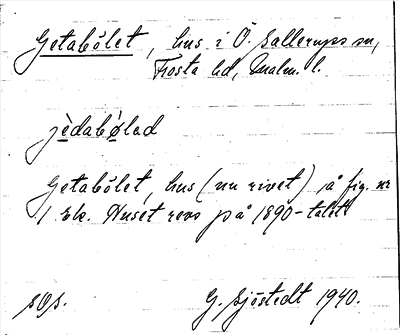 Getabôlet, hus i Ö. Sallerups sn,
Frosta hd, Malm. l.
jèdabòlad
Getabôlet, hus (nu rivet) å fig. nr
1 Ek. Huset revs på 1890-talet.
sOs.
G. Sjöstedt 1940.